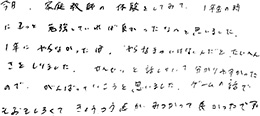 今日、家庭教師の体験をしてみて、1年生の時
にもっと勉強していれば良かったなぁと思いました。
1年にやらなかった分、やらなきゃいけないんだとたいへん
さをしりました。せんせいと話していて分かりやすかった
ので、がんばっていこうと思いました。ゲームの話で
もおもしろくてきょうつう点がみつかって良かったです